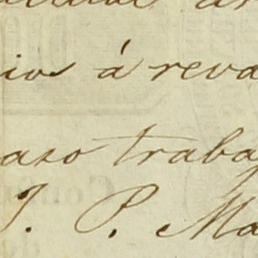 ios á reva
azo traba
J. P. Ma